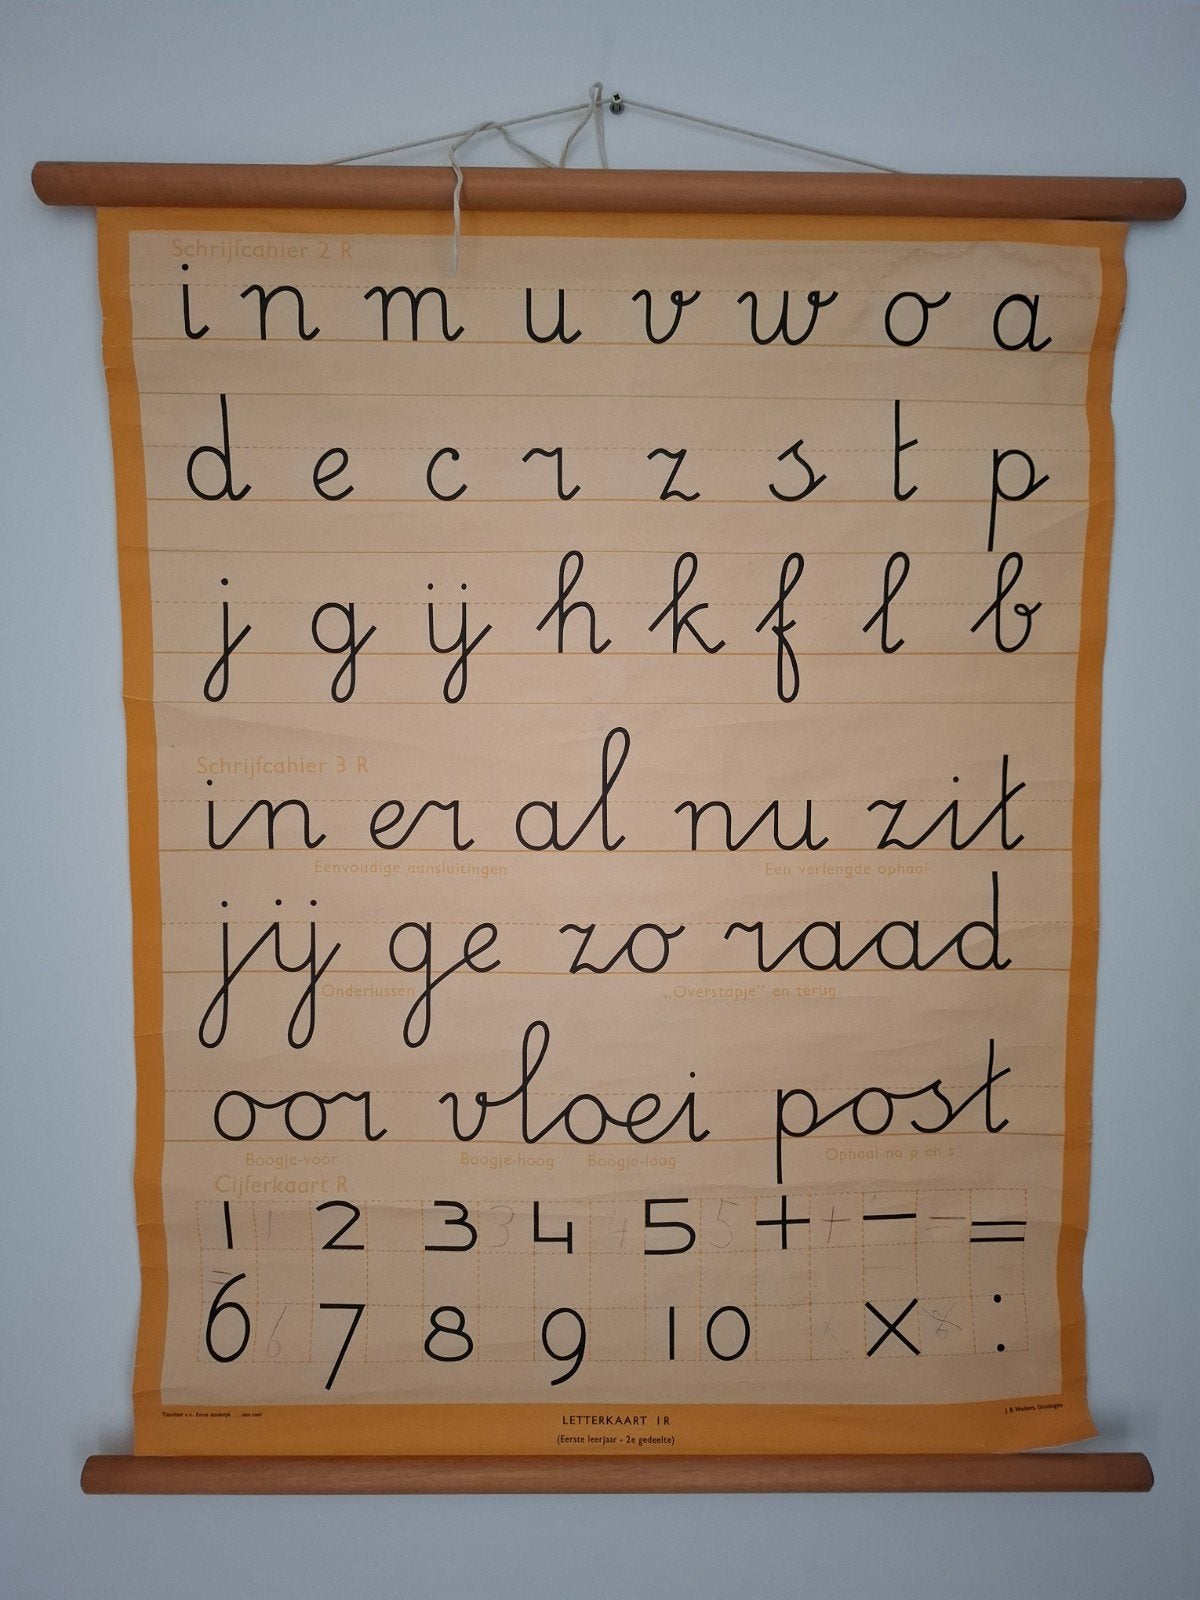 Schrijfcahier 2 R
i n m u v w o a
d e c r z s t p
j g ij h k f l b
Schrijfcahier 3 R
in er al nu zit
Eenvoudige aansluitingen Een verlengde ophaal
jij ge zo raad
Onderlussen „Overstapje” en terug
oor vloei post
Boogje-voor Boogje-hoog Boogje-laag Ophaal na p en s
Cijferkaart R
1 1 2 3 3 4 4 5 5 + + − − =
6 6 7 8 9 10 x x :
Eerst duidelijk dan snel J. B. Wolters, Groningen
LETTERKAART 1 R
(Eerste leerjaar - 2e gedeelte)